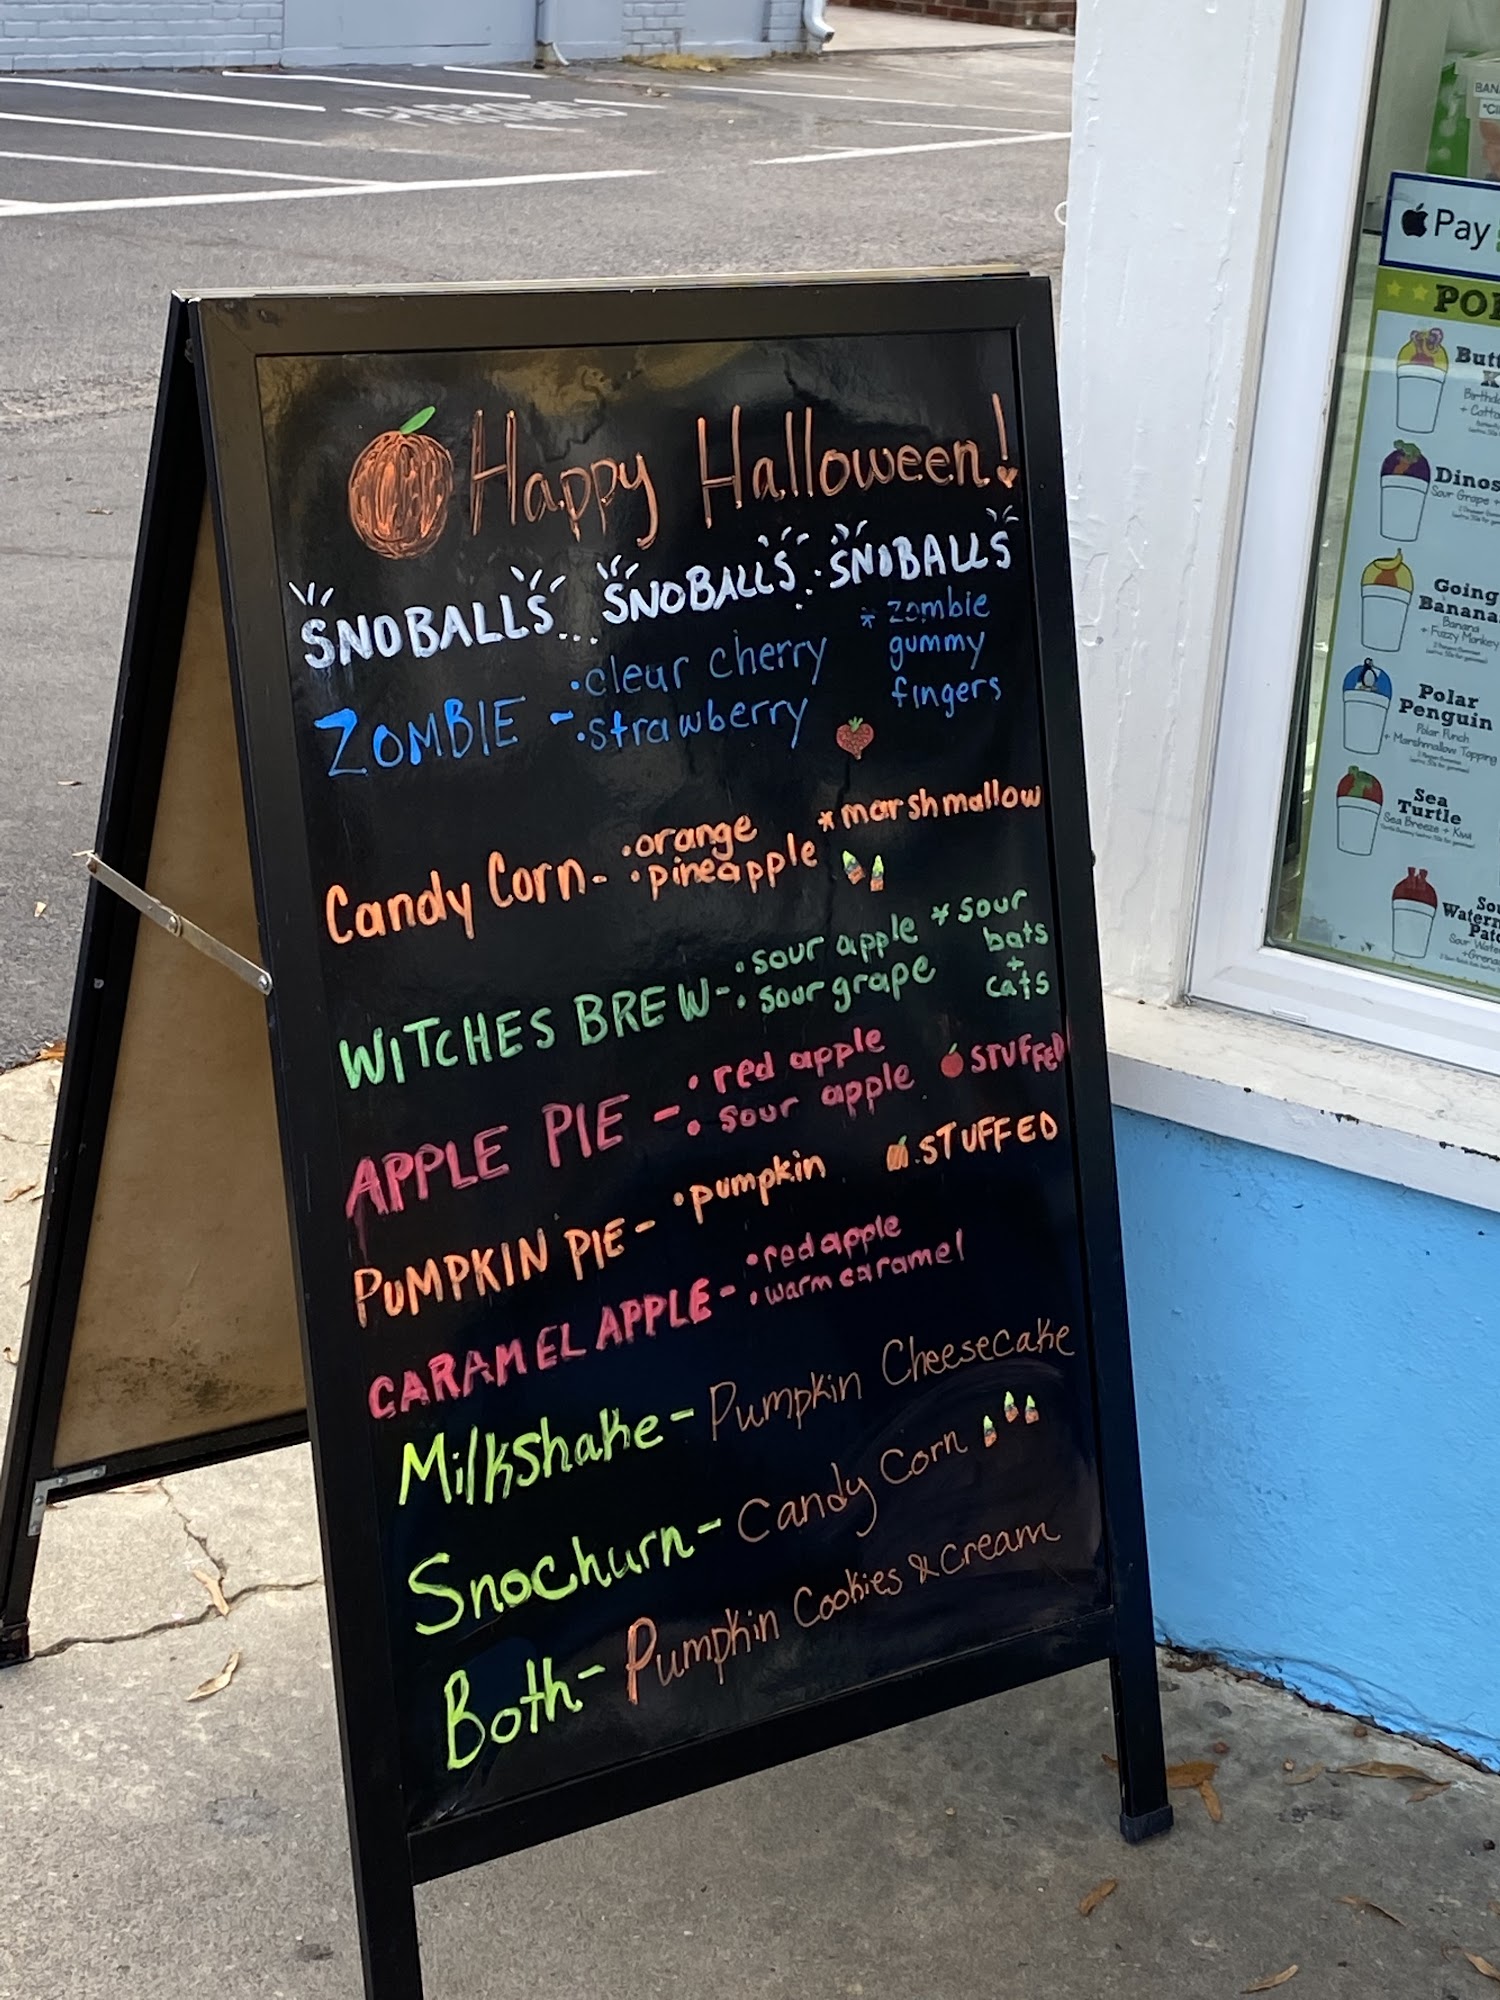 Happy Halloween!
SNOBALLS... SNOBALLS... SNOBALLS
ZOMBIE - • clear cherry
• strawberry
* zombie
gummy
fingers
Candy Corn - • orange
• pineapple
* marshmallow
WITCHES BREW - • sour apple
• sour grape
* sour
bats
+
cats
APPLE PIE - • red apple
• sour apple
STUFFED
PUMPKIN PIE - • pumpkin
STUFFED
CARAMEL APPLE - • red apple
• warm caramel
Milkshake - Pumpkin Cheesecake
Snochurn - Candy Corn
Both - Pumpkin Cookies & Cream
PARKING
Pay
Going
Banana
+ Fuzzy Monkey
Polar
Penguin
Polar Punch
+ Marshmallow Topping
Sea
Turtle
Sea Breeze + Kiwi
Sour Grape +